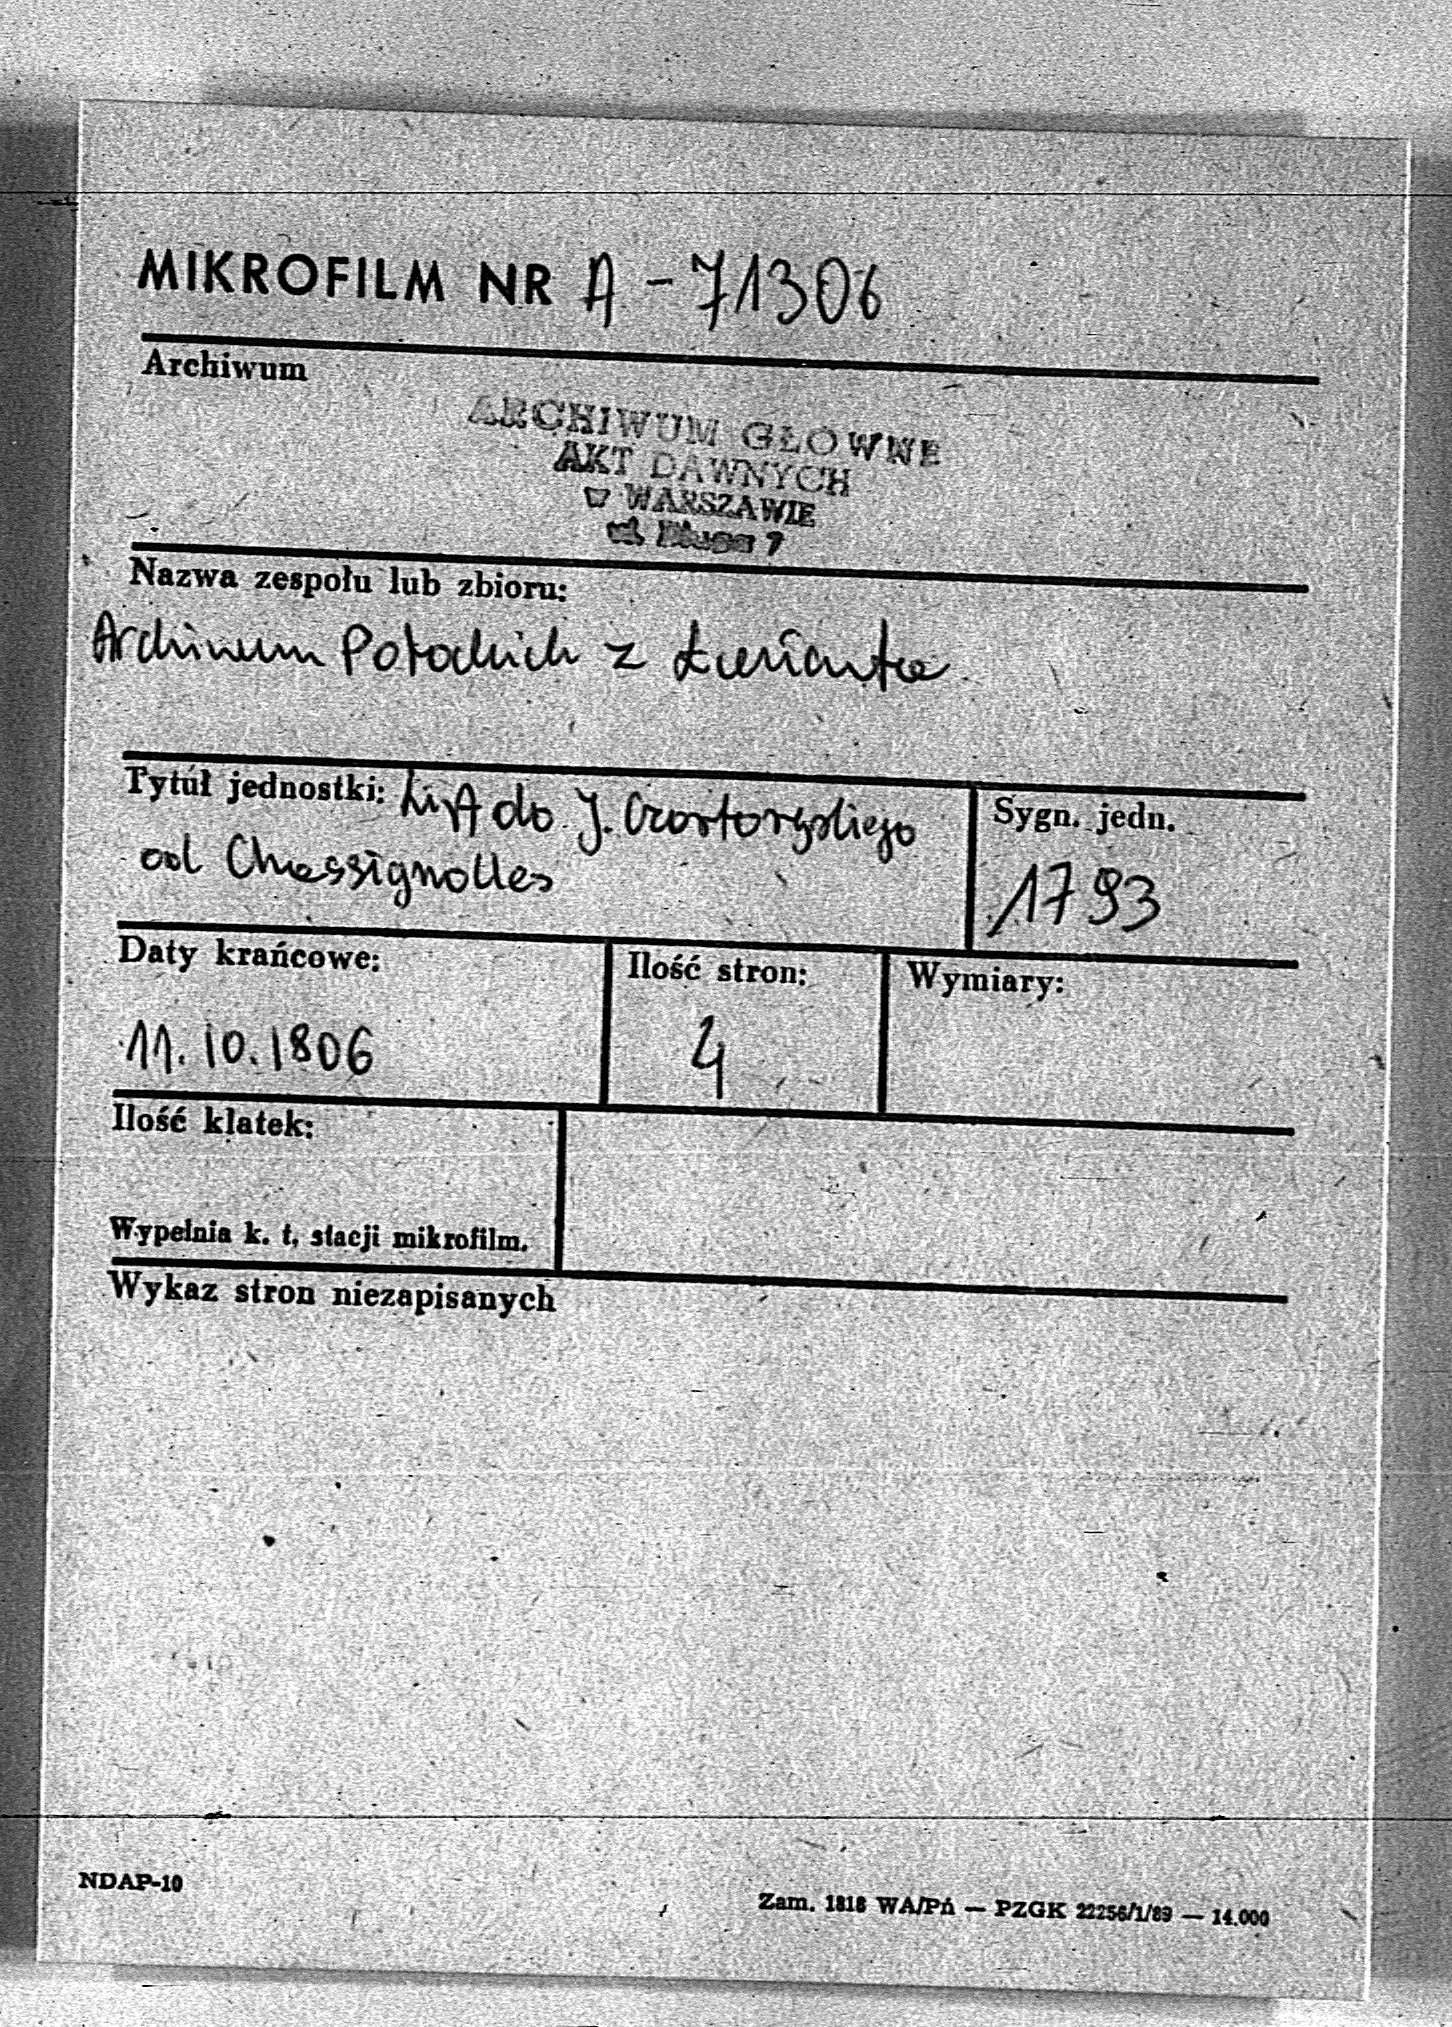 MIKROFILM NR A-71306
Archiwum
ARCHIWUM GŁÓWNE
AKT DAWNYCH
w WARSZAWIE
ul. Długa 7
Nazwa zespołu lub zbioru:
Archiwum Potockich z Łańcuta
Tytuł jednostki: List do J. Czartoryskiego
od Chassignolles
Sygn. jedn.
1793
Daty krańcowe:
Ilość stron:
Wymiary:
11.10.1806
4
Ilość klatek:
Wypełnia k. t. stacji mikrofilm.
Wykaz stron niezapisanych
NDAP-10
Zam. 1818 WA/Pń — PZGK 22256/1/89 — 14.000